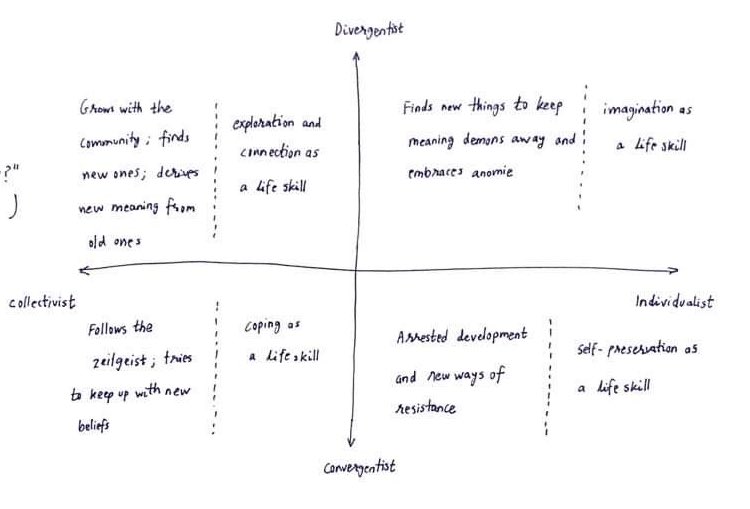 Divergentist
Grows with the
community; finds
new ones; derives
new meaning from
old ones
exploration and
connection as
a life skill
Finds new things to keep
meaning demons away and
embraces anomie
imagination as
a life skill
?"
)
collectivist
Individualist
Follows the
zeilgeist; tries
to keep up with new
beliefs
coping as
a life skill
Arrested development
and new ways of
resistance
self-preservation as
a life skill
Convergentist